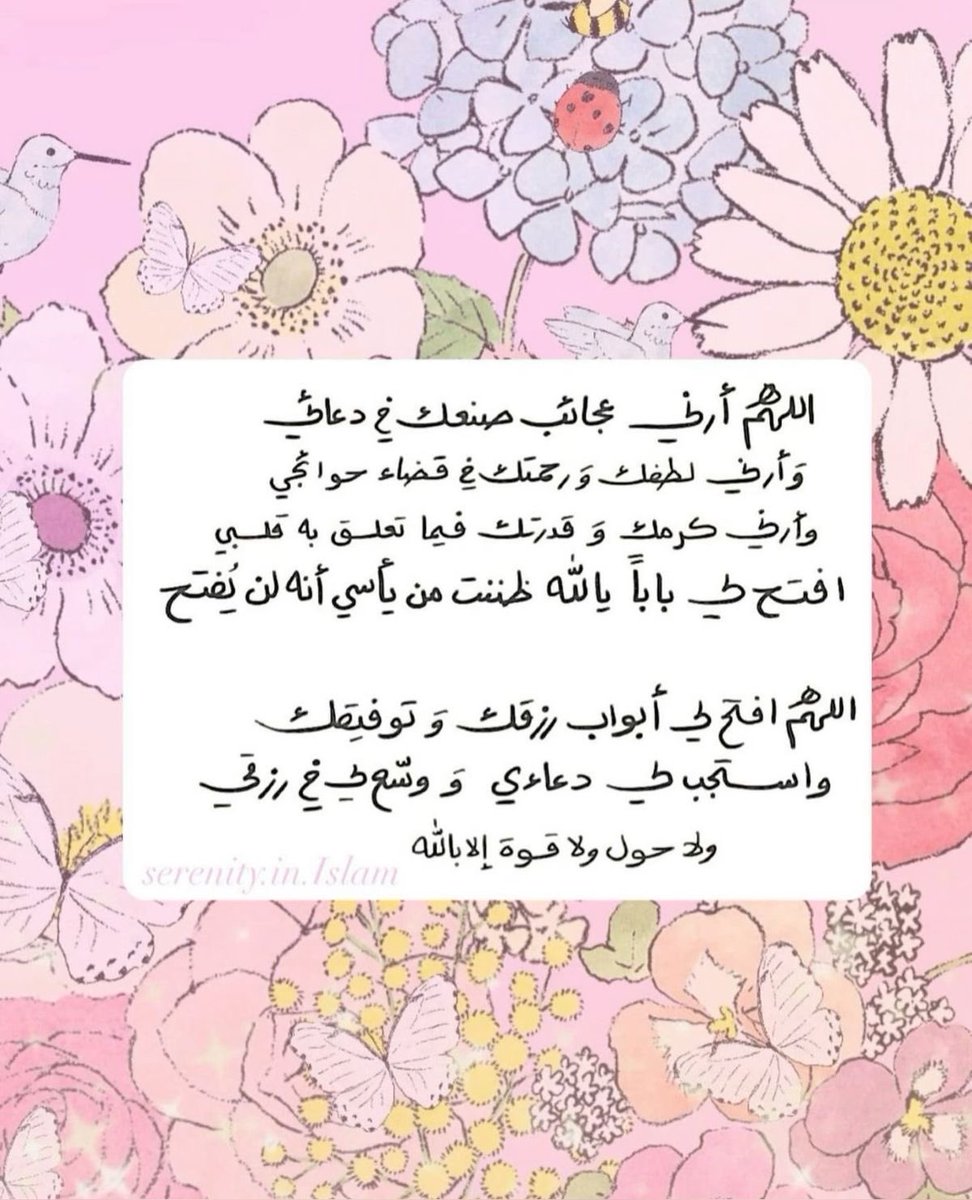 اللهم أرني عجائب صنعك في دعائي
وَأرني لطفك وَرحمتك في قضاء حوائجي
وأرني كرمك وَ قدرتك فيما تعلق به قلبي
افتح لي باباً يالله ظننت من يأسي أنه لن يُفتح
اللهم افتح لي أبواب رزقك وَ توفيقك
واستجب لي دعاءي وَ وسّع لي في رزقي
ولا حول ولا قوة إلا بالله
serenity.in.Islam